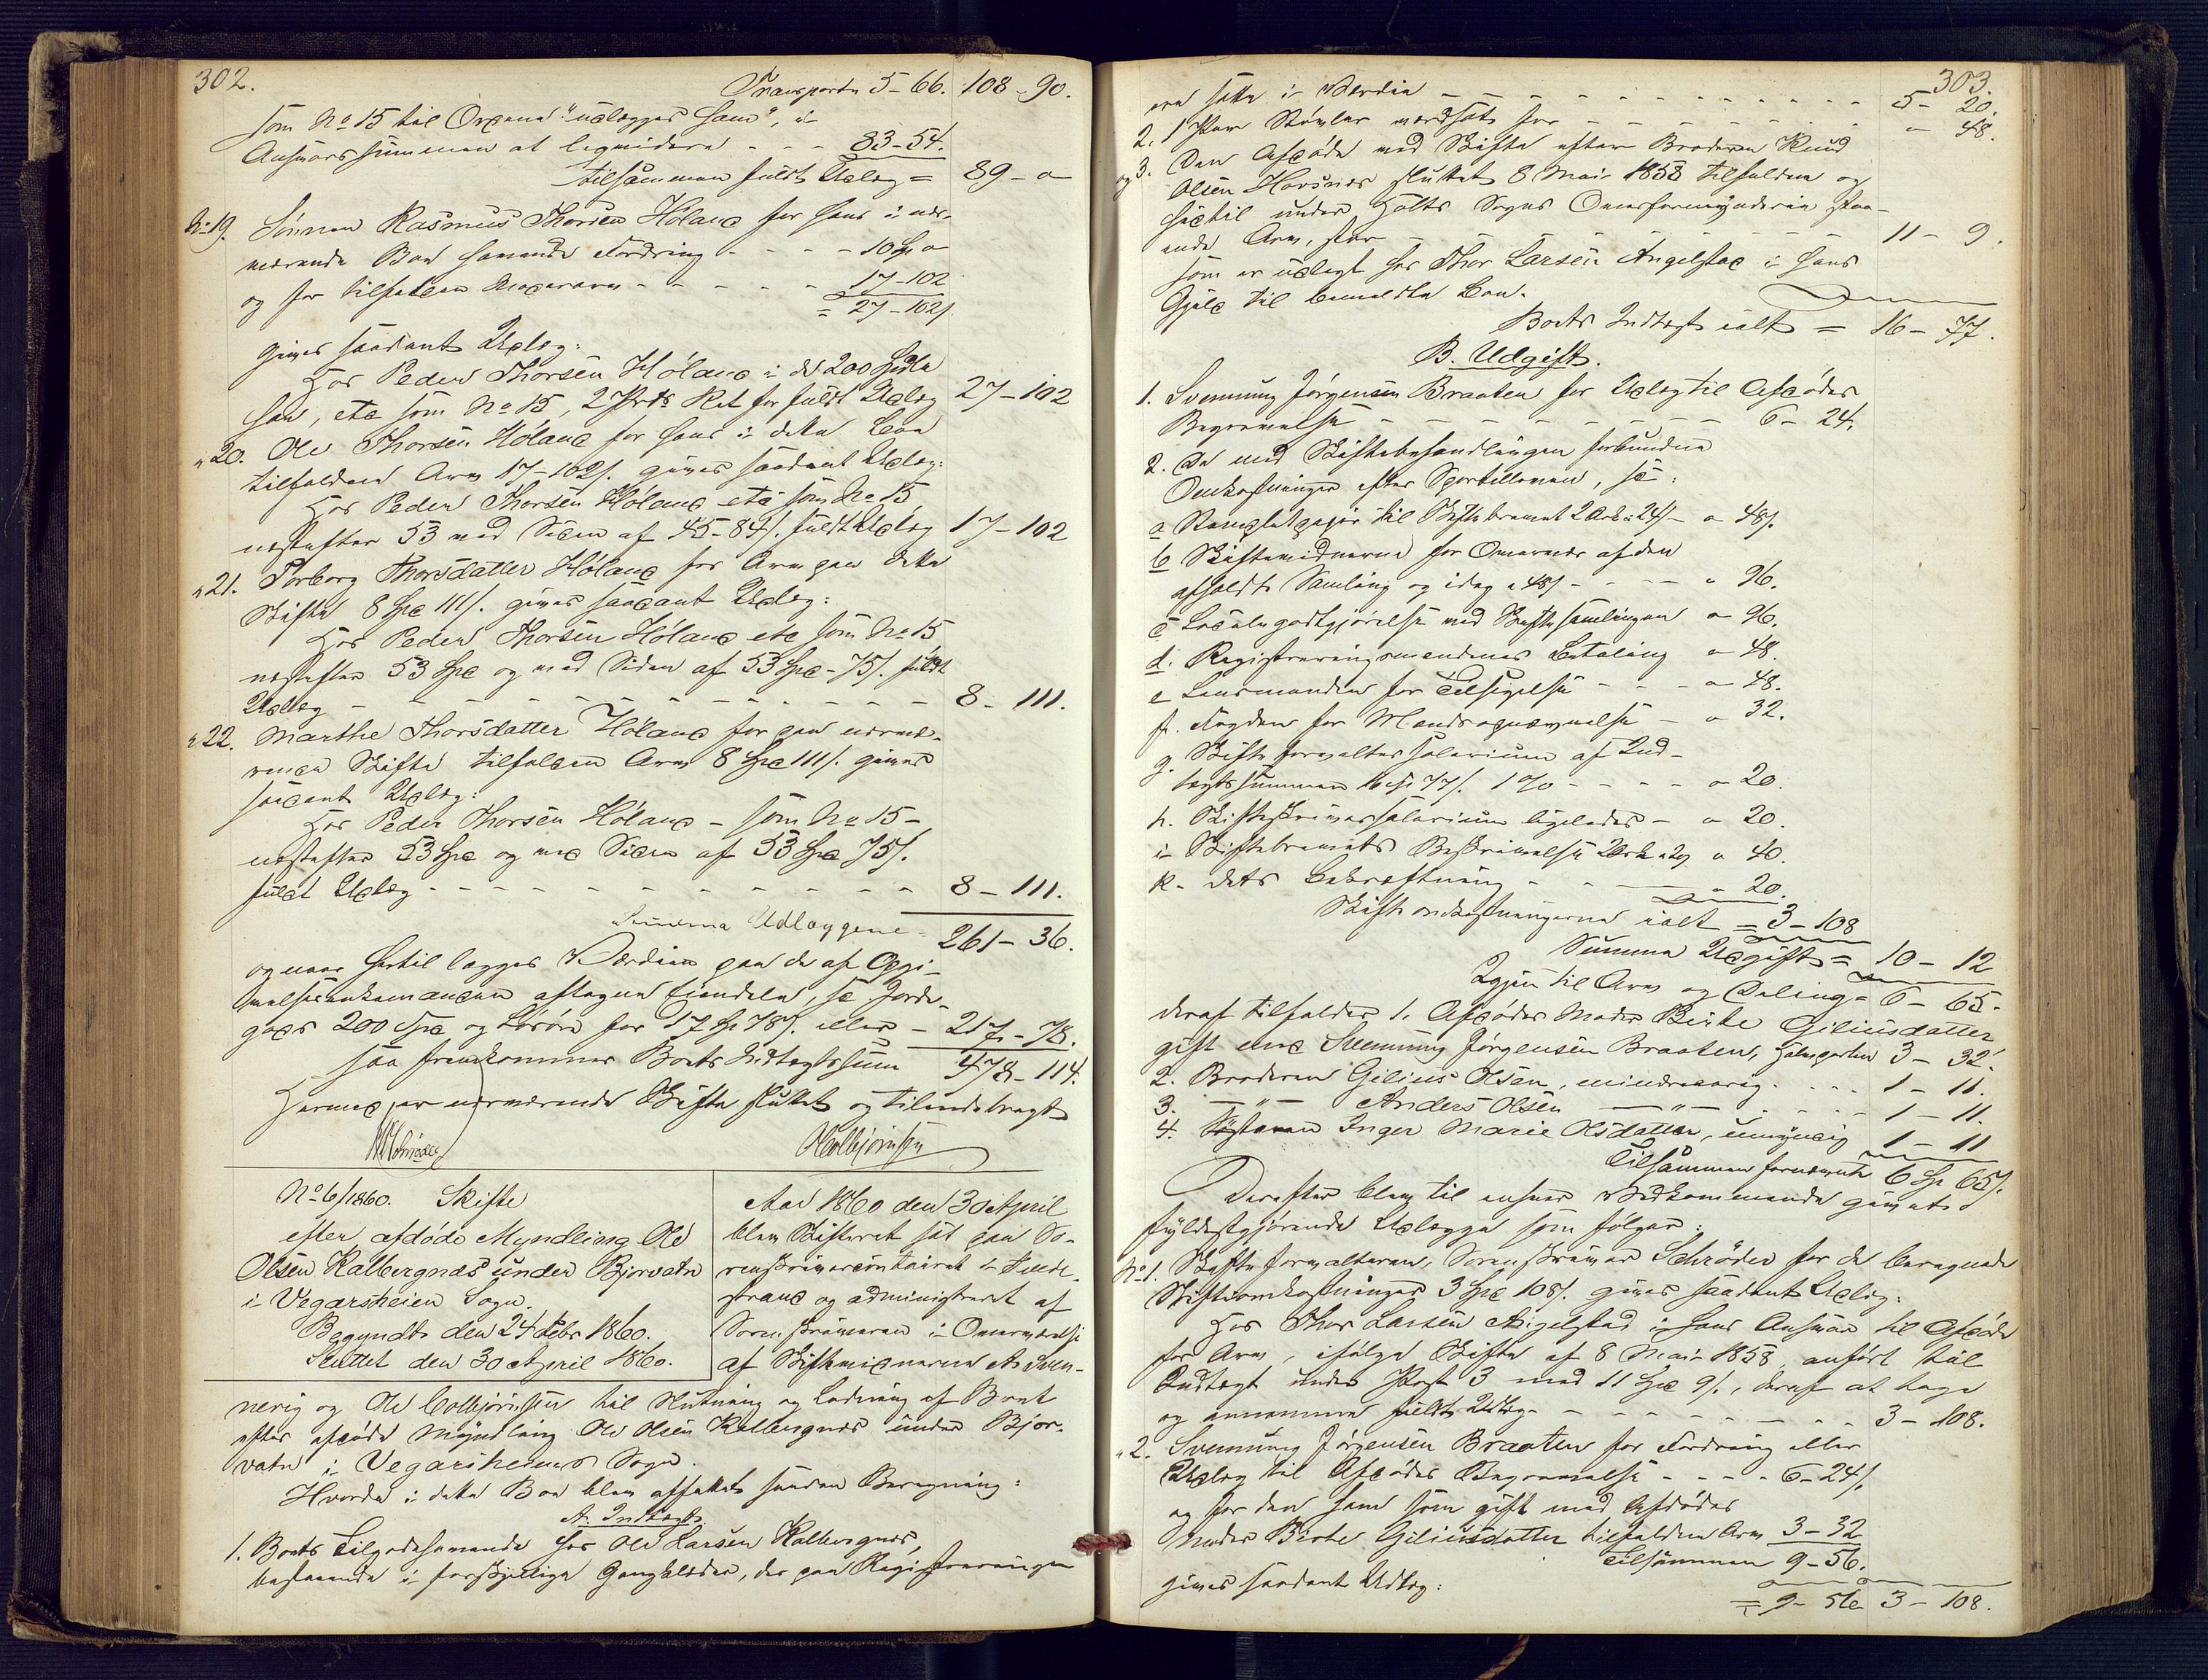 302.
Transporte 5-66. 108-90.
som No 15 til Ordena "udlægges ham", i
Ansvarssummen at liqvidere - - - 83-54.
tilsammen fuldt Udlæg = 89-"
No 19. Sønnen Rasmus Thorsen Holand for hans i nær-
værende Boe havende Fordring - - - 10 Spd "
og for tilfalden Moderarv - - - - - 17-102
= 27-102 s.
gives saadant Udlæg:
Hos Peder Thorsen Höland i de 200 Spdlr
han, etc som No 15, 2 Prds Ret for fuldt Udlæg 27-102
" 20. Ole Thorsen Höland for hans i dette Boe
tilfaldne Arv 17-102 s. gives saadant Udlæg:
Hos Peder Thorsen Höland etc som No 15,
næstefter 53 med Siden af 45-84 s. fuldt Udlæg 17-102
" 21. Torborg Thorsdatter Höland for Arv paa dette
Skifte 8 Spd 111 s. gives saadant Udlæg:
Hos Peder Thorsen Höland etc som No 15
næstefter 53 Spd og ved Siden af 53 Spd - 75 s. fuldt
Udlæg - - - - - - - - - - - 8-111.
" 22. Marthe Thorsdatter Höland for paa nærvæ-
rende Skifte tilfalden Arv 8 Spd 111 s. gives
saadant Udlæg:
Hos Peder Thorsen Höland - som No 15 -
næstefter 53 Spd og ved Siden af 53 Spd 75 s.
fuldt Udlæg - - - - - - - - - - 8-111.
Summa Udlæggene - 261-36.
og naar hertil lægges Værdien paa de af Opgi-
velsesenkemanden aftagne Eiendele, sc Jorde-
gods 200 Spd og Løsøre for 17 Sp 78 s. eller - 217-78.
saa fremkommer Boets Indtægtssum 478-114.
Hermed er nærværende Skifte sluttet og tilendebragt
Schrøder OColbjörnsen
No 6/1860. Skifte
efter afdøde Myndling Ole
Olsen Kalbergnæs under Bjorvatn
i Vegarsheien Sogn.
Begyndt den 24 Febr 1860.
Sluttet den 30 April 1860.
Aar 1860 den 30 April
blev Skifteret sat paa So-
renskrivercontoiret i Tvede-
strand og administreret af
Sorenskriveren i Overværelse
af Skiftevidnerne A. Sven-
nevig og Ole Colbjörnsen til Slutning og Lodning af Boet
efter afdøde Myndling Ole Olsen Kalbergnæs under Bjor-
vatn i Vegarsheiens Sogn.
Hvorda i dette Boe blev affattet saadan Beregning:
A. Indtægt.
1. Boets Tilgodehavende hos Ole Larsen Kalbergnæs,
bestaaende i forskjellige Gangklæder, der paa Registreringen
303.
ere satte i Værdie - - - - - - - - - 5-20.
2. 1 Par Støvler værdsat for - - - - - - - " - 48.
og 3. Den Afdøde ved Skifte efter Broderen Knud
Olsen Hovsnæs sluttet 8 Mai 1858 tilfaldne og
hidtil under Holts Sogns Overformynderie staa-
ende Arv, stor - - - - - - - - - 11-9.
som er udlagt hos Thor Larsen Angelstad i hans
Gjæld til bemeldte Boe.
Boets Indtægt ialt = 16-77.
B. Udgift.
1. Svennung Jörgensen Braaten for Udlæg til Afdødes
Begravelse - - - - - - - - 6-24.
2. De med Skiftebehandlingen forbundne
Omkostninger efter Sportelloven, sc:
a Stemplet papir til Skiftebrevet 2 Ark a 24 s - " 48 s.
b Skiftevidnerne for Overvær af den
afholdte Samling og idag a 48 s - - - - " 96.
c Localegodtgjörelse ved Skiftesamlingen " 96.
d. Registreringsmændenes Betaling " 48.
e Lensmanden for Tilsigelse - - - " 48.
f. Fogden for Mændsopnævnelse - " 32.
g. Skifteforvaltersalarium af Ind-
tægtssummen 16 sp 77 s. 1% - - - - " 20.
h. Skifteskriversalarium ligeledes - " 20.
i Skiftebrevets Beskrivelse 2 Ark a 20 " 40.
k. dets Bekræftning - - - " 20.
Skifteomkostningerne ialt = 3-108
Summa Udgift = 10-12
Igjen til Arv og Deling = 6-65.
deraf tilfalder 1. Afdødes Moder Birte Giliusdatter
gift med Svennung Jörgensen Braaten, Halvparten 3-32.
2. Broderen Gilius Olsen, mindreaarig - - - - 1-11.
3. — " — Anders Olsen — " — - - - - 1-11.
4. Søsteren Inger Marie Olsdatter, umyndig 1-11
Tilsammen fornævnte 6 Sp 65 s.
Derefter blev til enhver Vedkommende givet
fyldestgjørende Udlægge som følger:
No 1. Skifteforvalteren, Sorenskriver Schröder for de beregnede
Skifteomkostninger 3 Spd 108 s. gives saadant Udlæg:
Hos Thor Larsen Angelstad i hans Ansvar til Afdøde
for Arv, ifølge Skifte af 8 Mai 1858, anført til
Indtægt under Post 3 med 11 Spd 9 s., deraf at tage
og annamme fuldt Udlæg - - - - - - - - 3-108.
" 2. Svennung Jörgensen Braaten for Fordring eller
Udlæg til Afdødes Begravelse - - - - 6-24 s.
og for den ham som gift med Afdødes
Moder Birte Giliusdatter tilfaldne Arv 3-32
Tilsammen 9-56.
gives saadant Udlæg:
= 9-56 3-108.